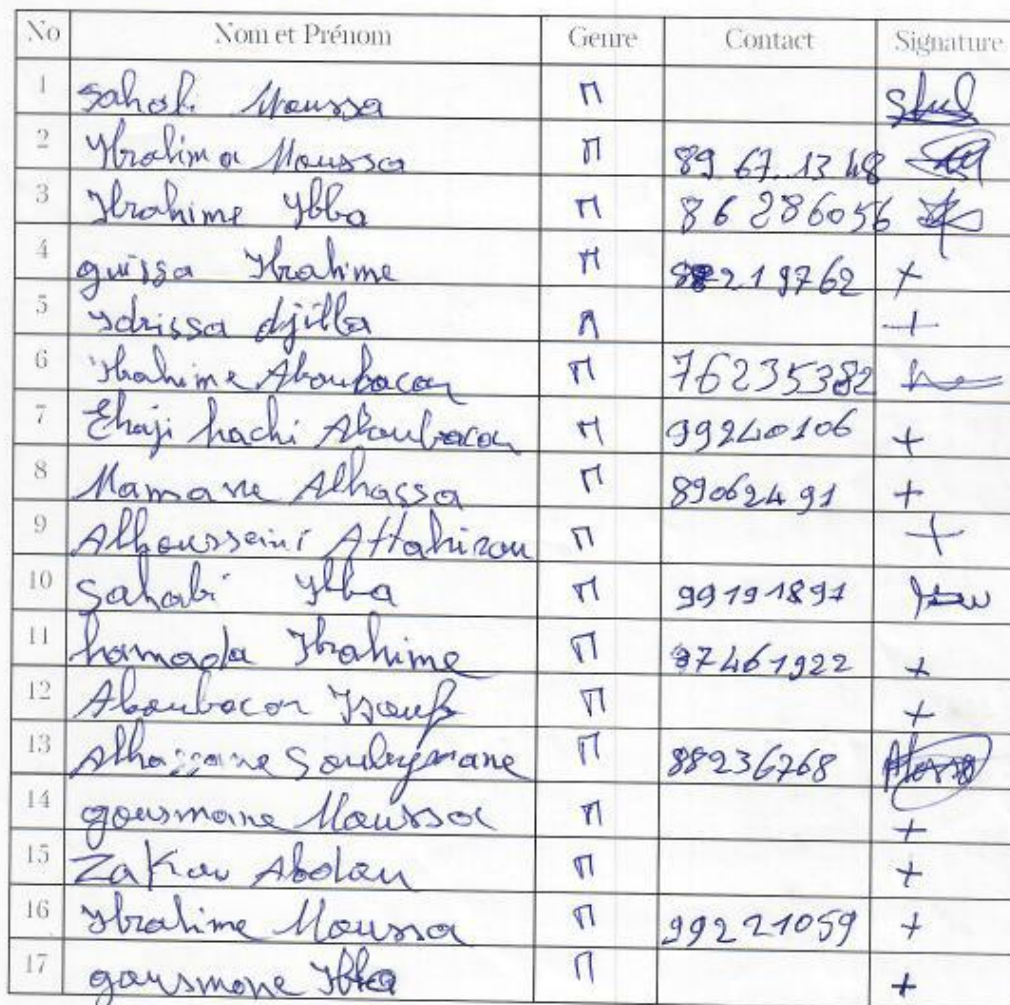 No Nom et Prénom Genre Contact Signature
1 Sahabi Moussa M
2 Ibrahima Moussa M 89 67 13 48
3 Ibrahime Ybba M 86 286056
4 guissa Ibrahime M 219762 +
5 Idrissa djilla M +
6 Ibrahime Aboubacar M 76235382
7 Elhaji hachi Aboubacar M 99240106 +
8 Mamane Alhassa M 89062491 +
9 Alhousseini Attahirou M +
10 Sahabi Ybba M 99191891
11 hamada Ibrahime M 97461922 +
12 Aboubacar Issouf M +
13 Alhassane Souleymane M 88236768
14 gousmane Moussa M +
15 Zakou Abdou M +
16 Ibrahime Moussa M 99221059 +
17 gousmane Ybba M +